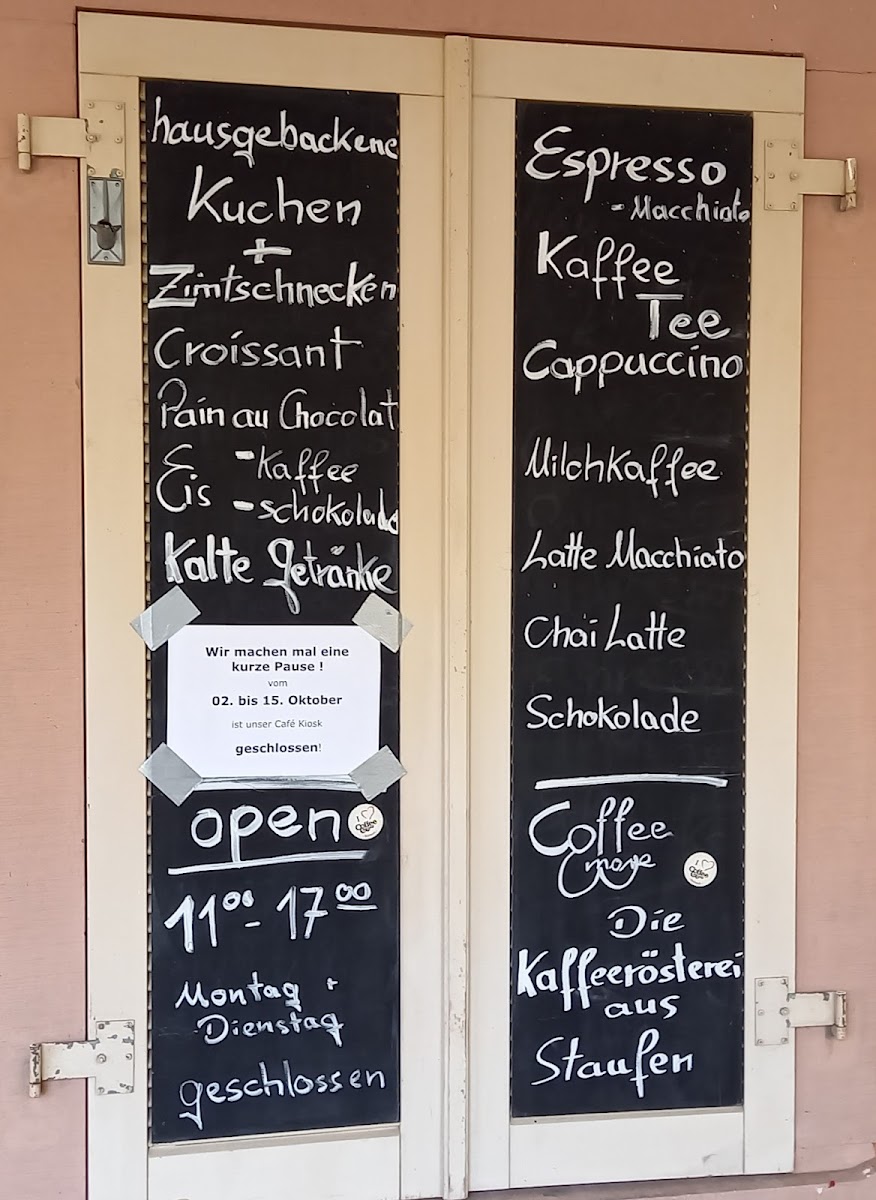 hausgebackene
Kuchen
+
Zimtschnecken
Croissant
Pain au Chocolat
Eis - Kaffee
- schokolade
Kalte Getränke
Wir machen mal eine
kurze Pause !
vom
02. bis 15. Oktober
ist unser Café Kiosk
geschlossen!
open
11⁰⁰ - 17⁰⁰
Montag +
Dienstag
geschlossen
Espresso
- Macchiato
Kaffee
Tee
Cappuccino
Milchkaffee
Latte Macchiato
Chai Latte
Schokolade
Coffee
more
Die
Kaffeerösterei
aus
Staufen